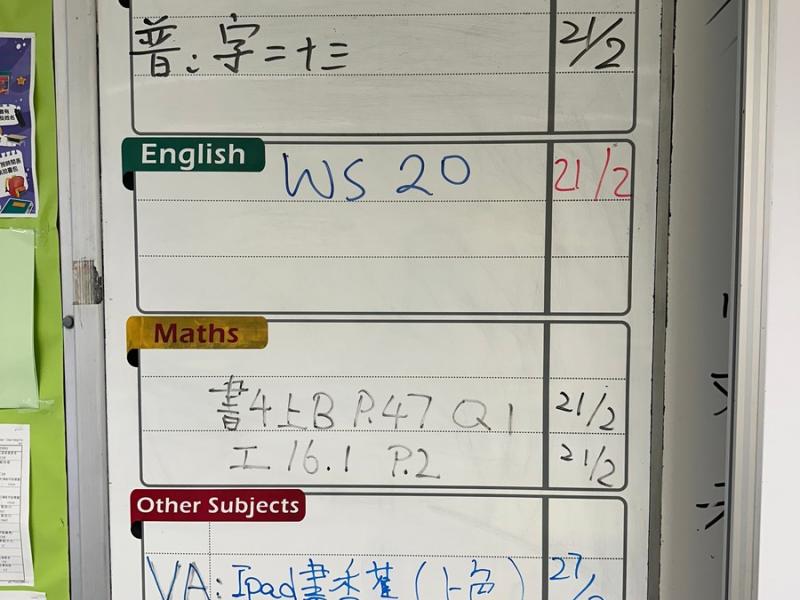 普：字=十三 21/2
English
WS 20 21/2
Maths
書4上B P.47 Q1 21/2
工16.1 P.2 21/2
Other Subjects
VA: Ipad畫香蕉(上色) 27/